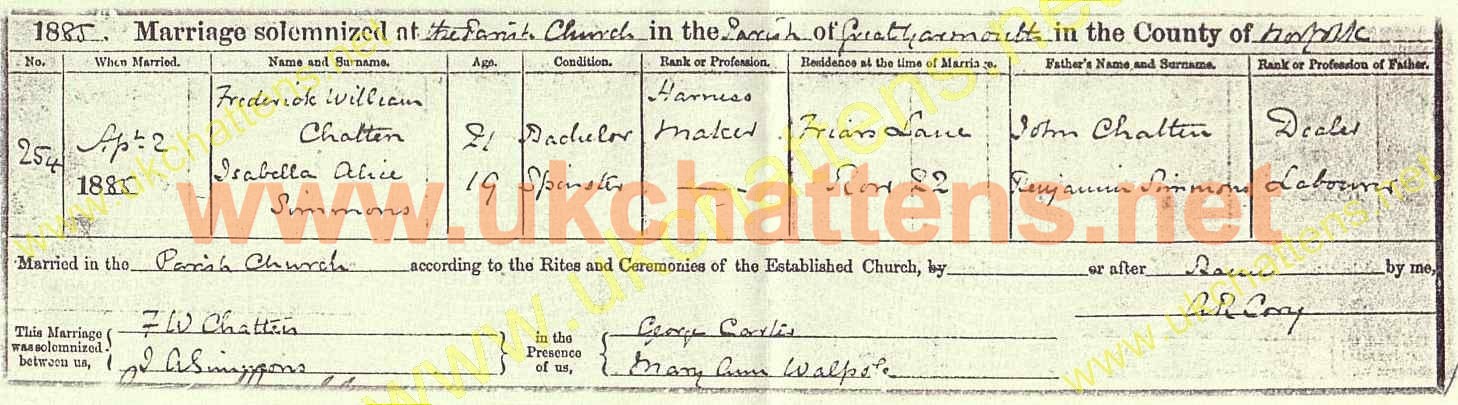 1885. Marriage solemnized at the Parish Church in the Parish of Great Yarmouth in the County of Norfolk
No. When Married. Name and Surname. Age. Condition. Rank or Profession. Residence at the time of Marriage. Father's Name and Surname. Rank or Profession of Father.
Frederick William Harness
Chatten 21 Bachelor Maker Friars Lane John Chatten Dealer
254 Sept 2
1885 Isabella Alice 19 Spinster — Row 22 Benjamin Simmons Labourer
Simmons
www.ukchattens.net
Married in the Parish Church according to the Rites and Ceremonies of the Established Church, by or after Banns by me,
A R Cory
This Marriage was solemnized between us, F W Chatten in the Presence of us, George
I A Simmons Mary Ann Walpole
www.ukchattens.net
www.ukchattens.net
www.ukchattens.net